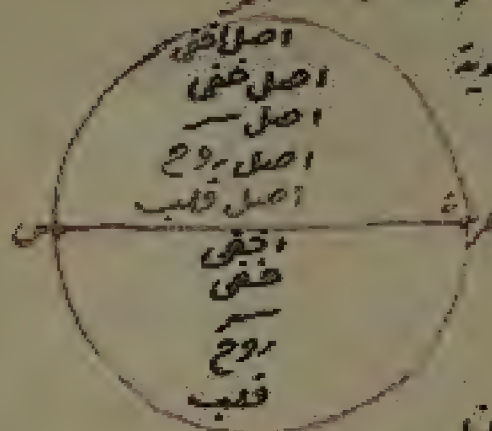 اصل اخفى
اصل خفى
اصل سر
اصل روح
اصل قلب
اخفى
خفى
سر
روح
قلب